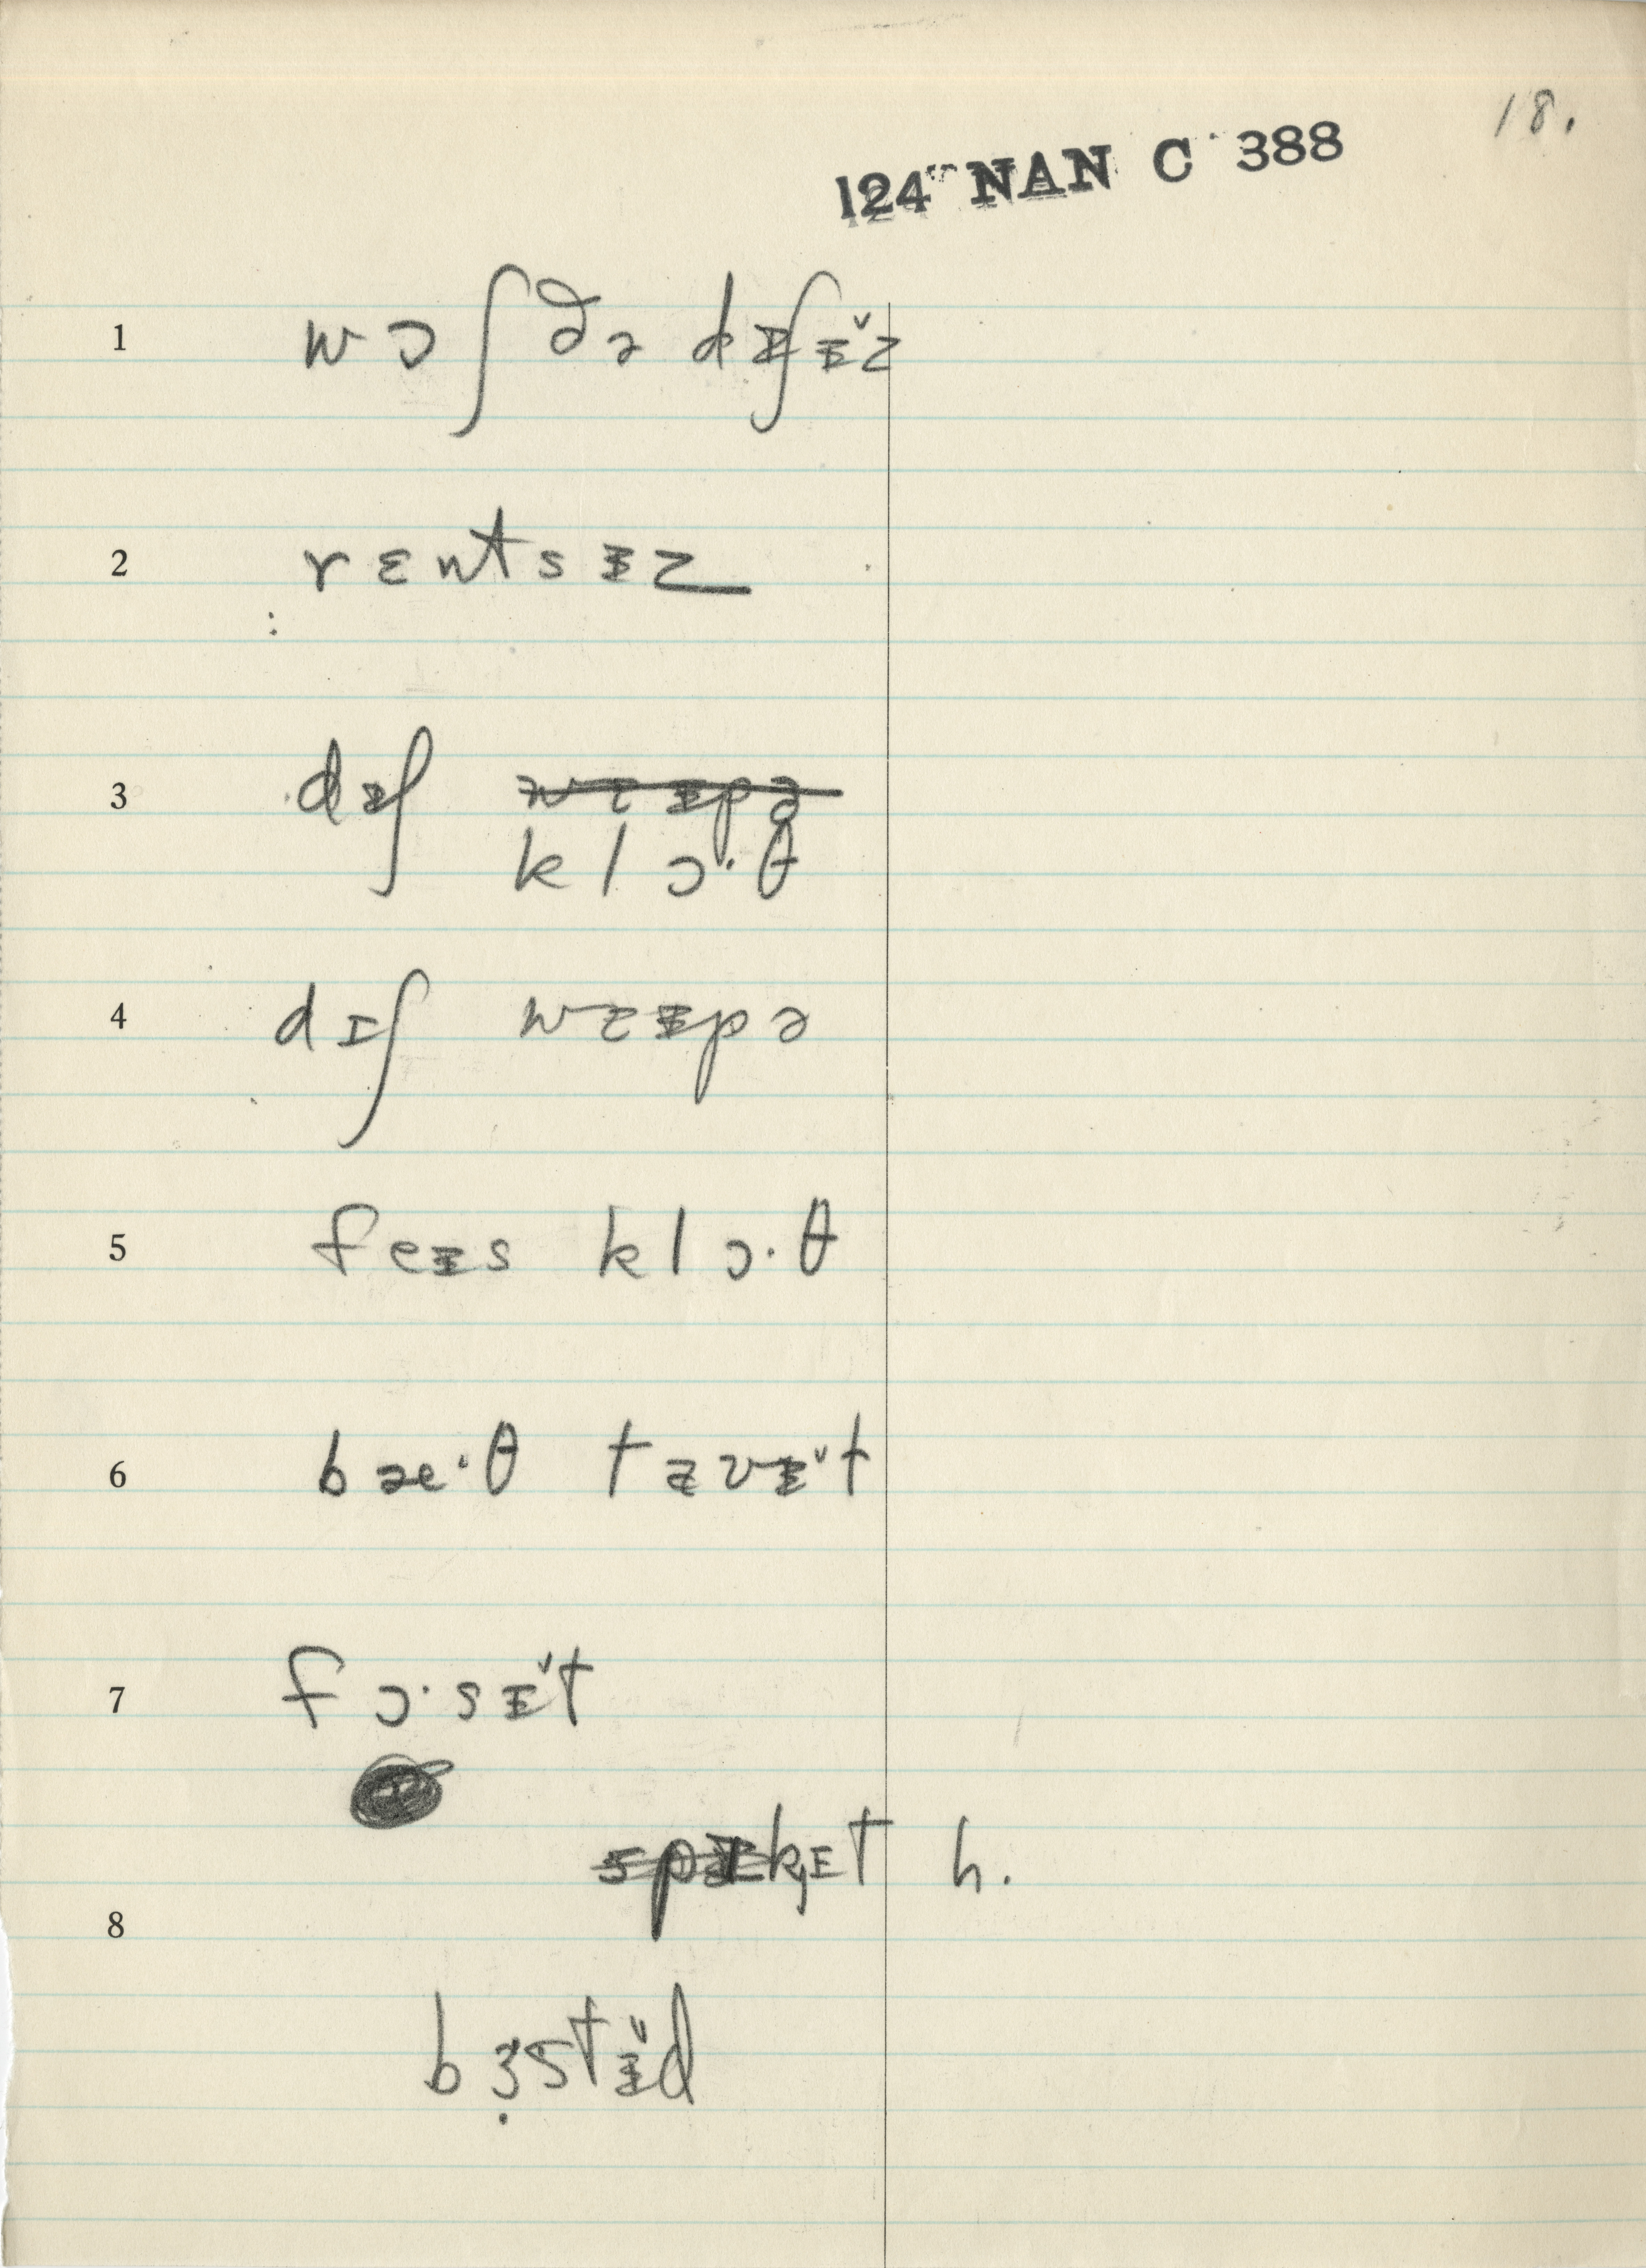 18.
124 NAN C 388
1 wɔʃ ðə dɪʃɪ̌z
2 rɛntsɪz
3 dɪʃ wɛɪpə
klɔ·θ
4 dɪʃ wɛɪpə
5 feɪs klɔ·θ
6 bæ·θ tavɪ̌t
7 fɔ·sɪ̌t
spɪkɪt h.
8
bɜ̣stɪ̌d